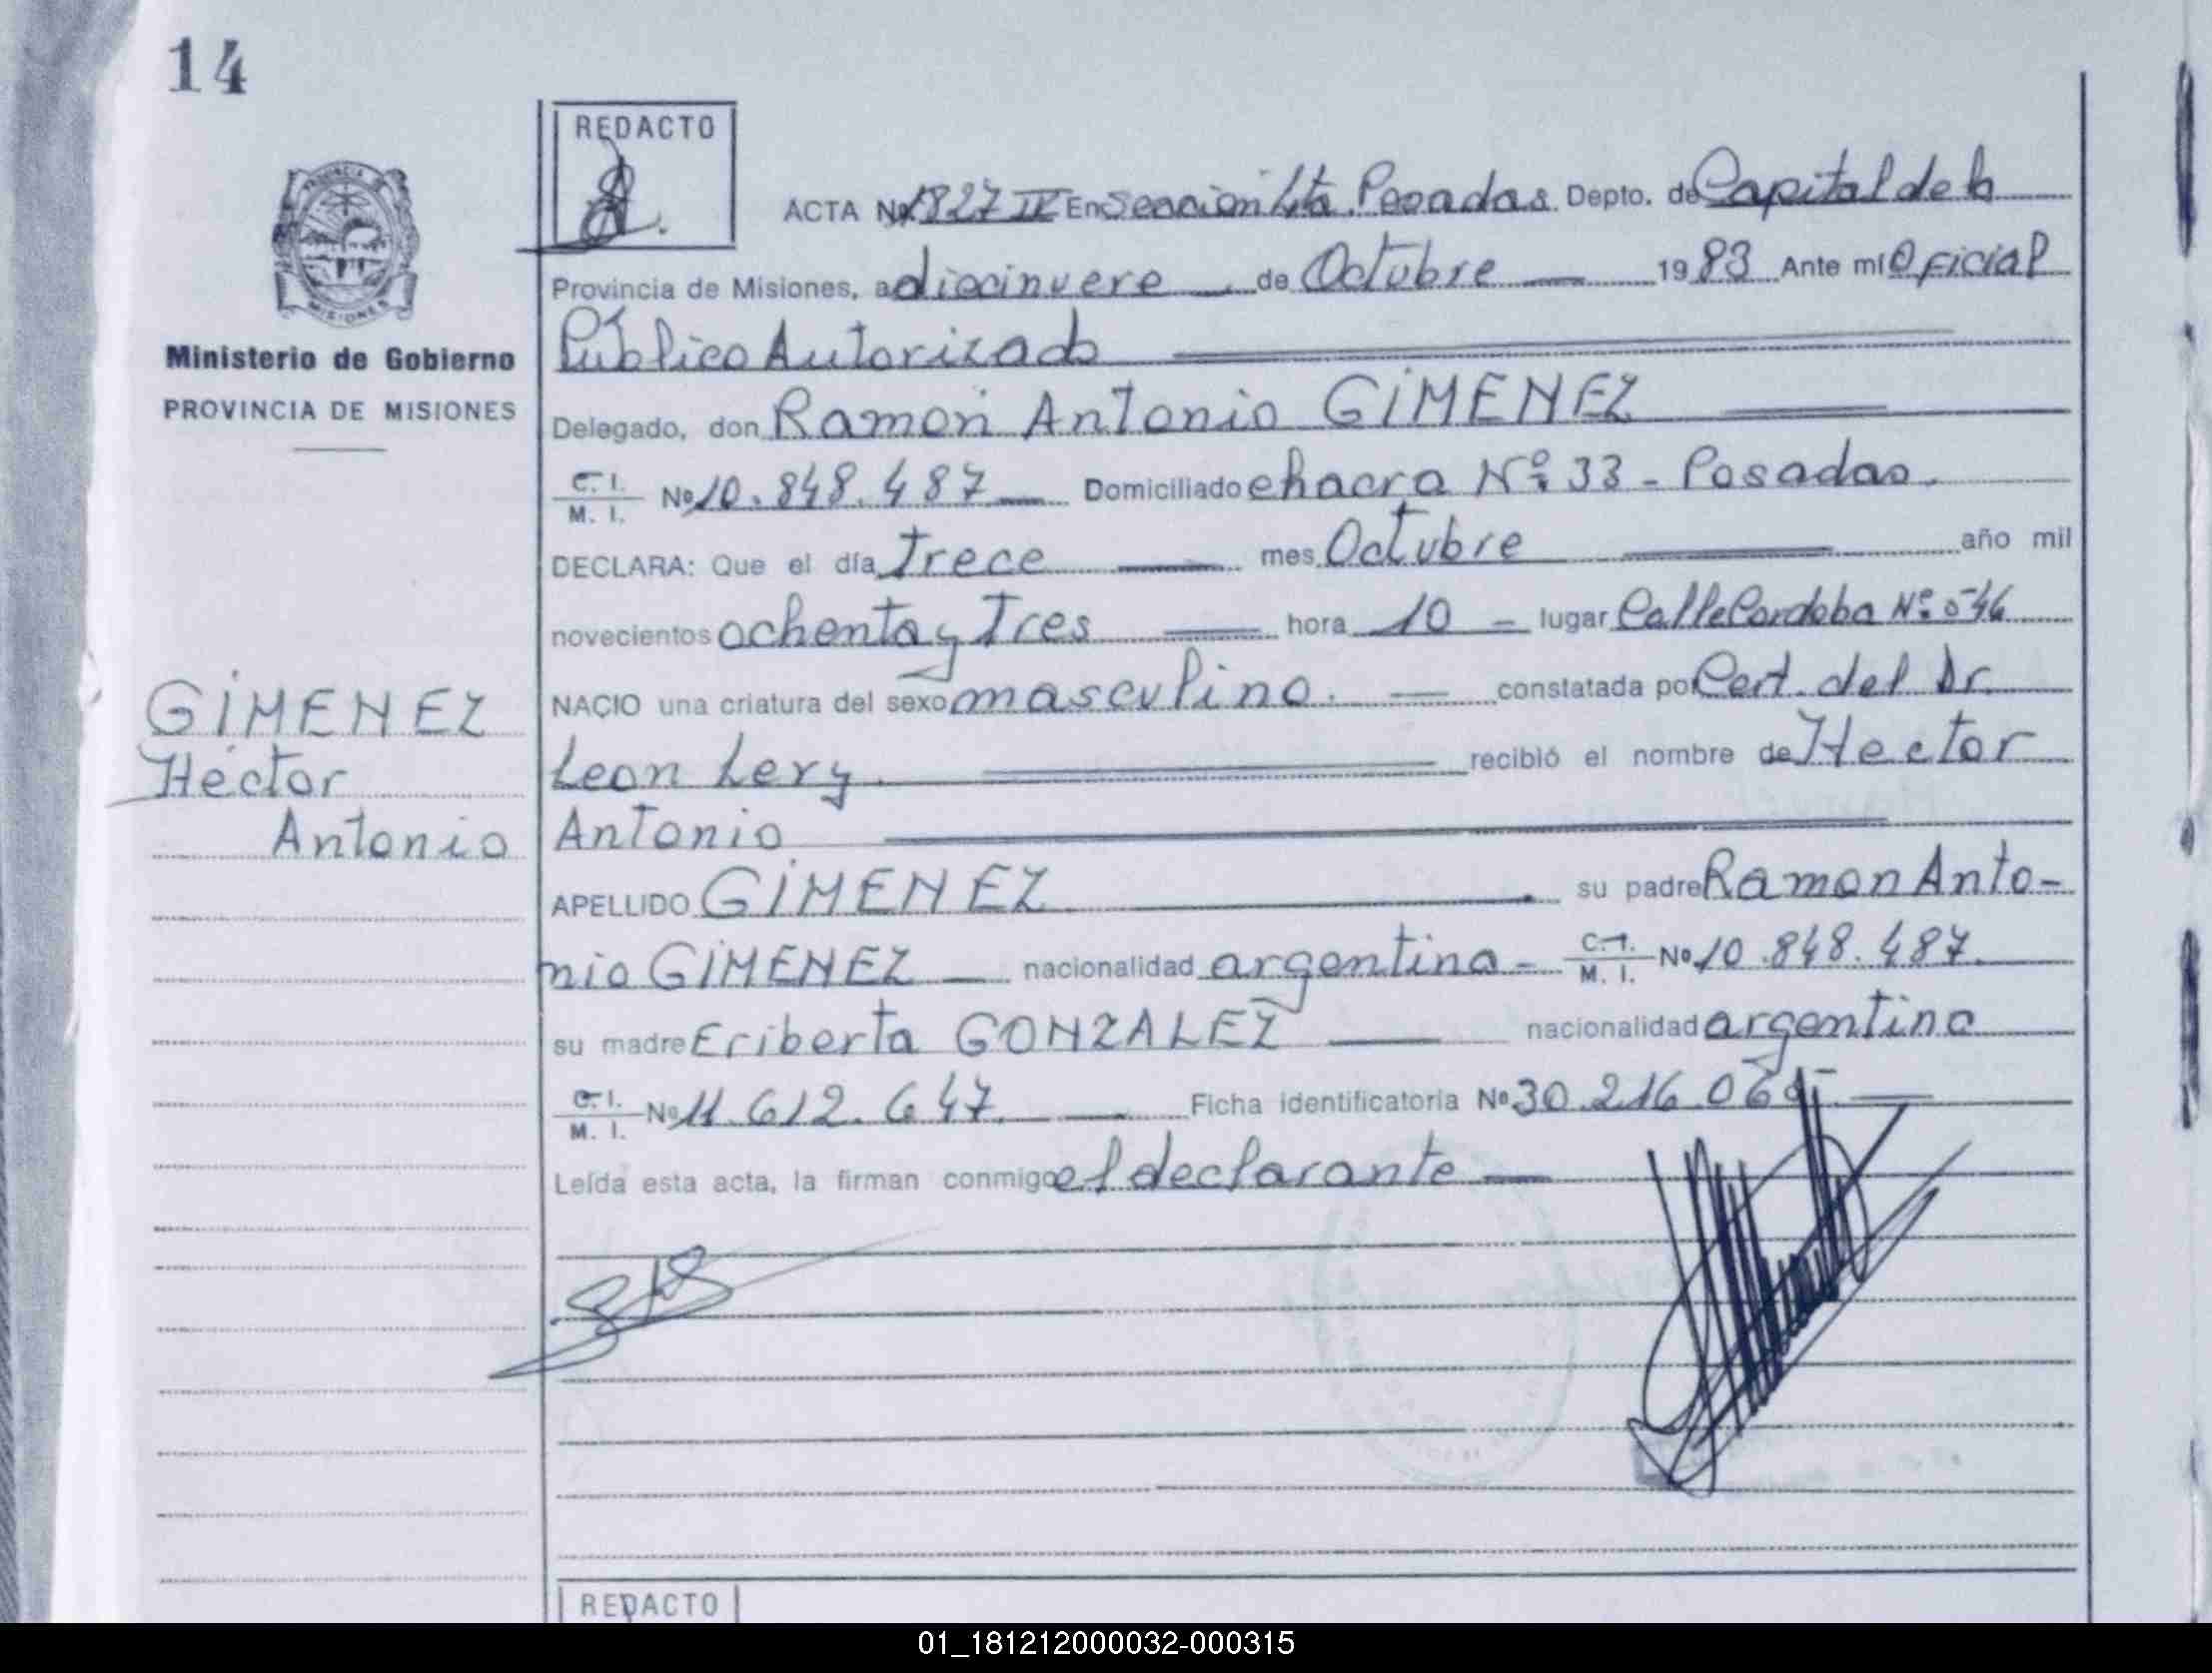 14
REDACTO
PROVINCIA DE
MISIONES
Ministerio de Gobierno
PROVINCIA DE MISIONES
ACTA Nº 1827 IV En Seccion 4ta. Posadas Depto. de Capital de la
Provincia de Misiones, a diecinueve de Octubre 1983 Ante mí Oficial
Público Autorizado
Delegado, don Ramón Antonio GIMENEZ
C. I. / M. I. Nº 10.848.487 Domiciliado chacra Nº 33 - Posadas.
DECLARA: Que el día Trece mes Octubre año mil
novecientos ochenta y Tres hora 10 - lugar Calle Cordoba Nº 546
NACIO una criatura del sexo masculino. constatada por Cert. del Dr.
Leon Levy. recibió el nombre de Hector
Antonio
GIMENEZ
Héctor
Antonio
APELLIDO GIMENEZ . su padre Ramon Anto-
nio GIMENEZ nacionalidad argentina - C. I. / M. I. Nº 10.848.487.
su madre Eriberta GONZALEZ nacionalidad argentina
C. I. / M. I. Nº 11.612.647. Ficha identificatoria Nº 30.216.065
Leída esta acta, la firman conmigo el declarante
REDACTO
01_181212000032-000315